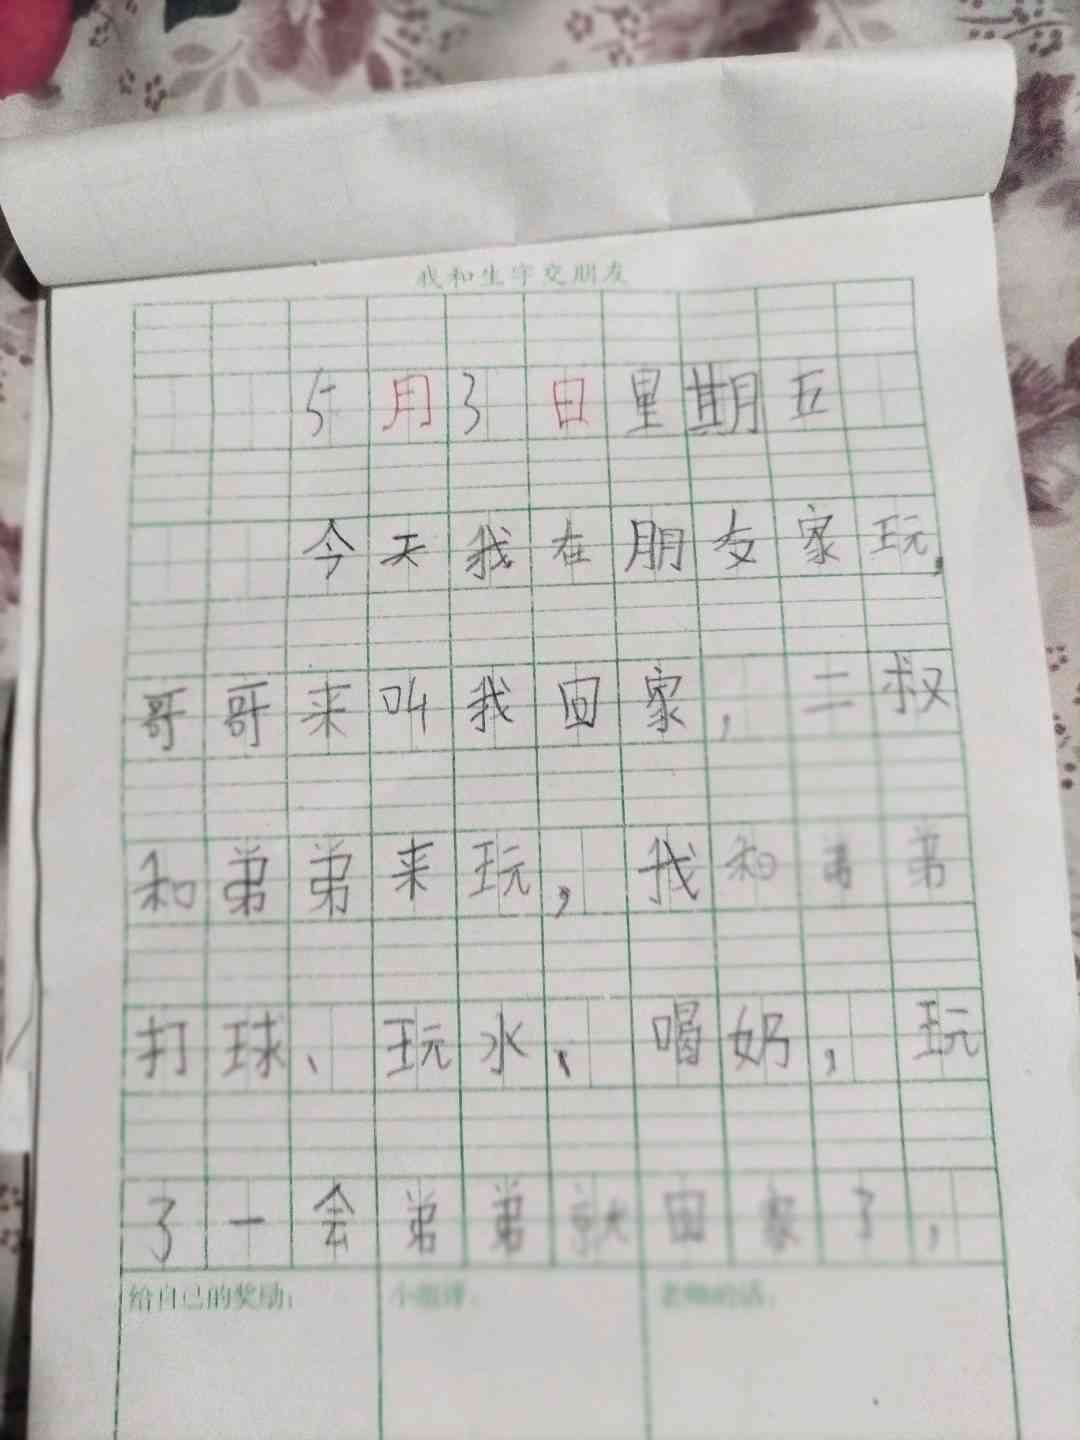 我和生字交朋友
5月3日星期五
今天我在朋友家玩,
哥哥来叫我回家,二叔
和弟弟来玩,我和弟弟
打球、玩水、喝奶,玩
了一会弟弟就回家了,
给自己的奖励: 小组评: 老师的话: